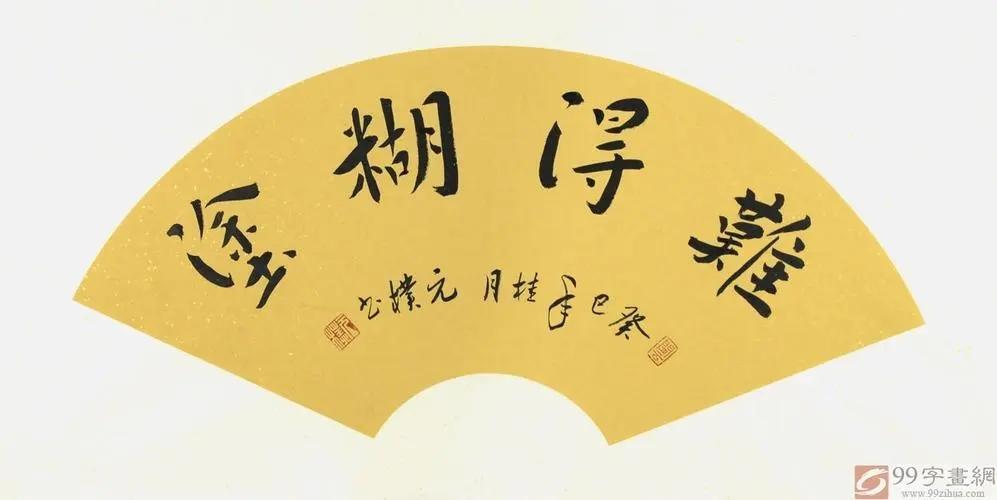 難得糊塗
癸巳年桂月元樸書
99字畫網
www.99zihua.com